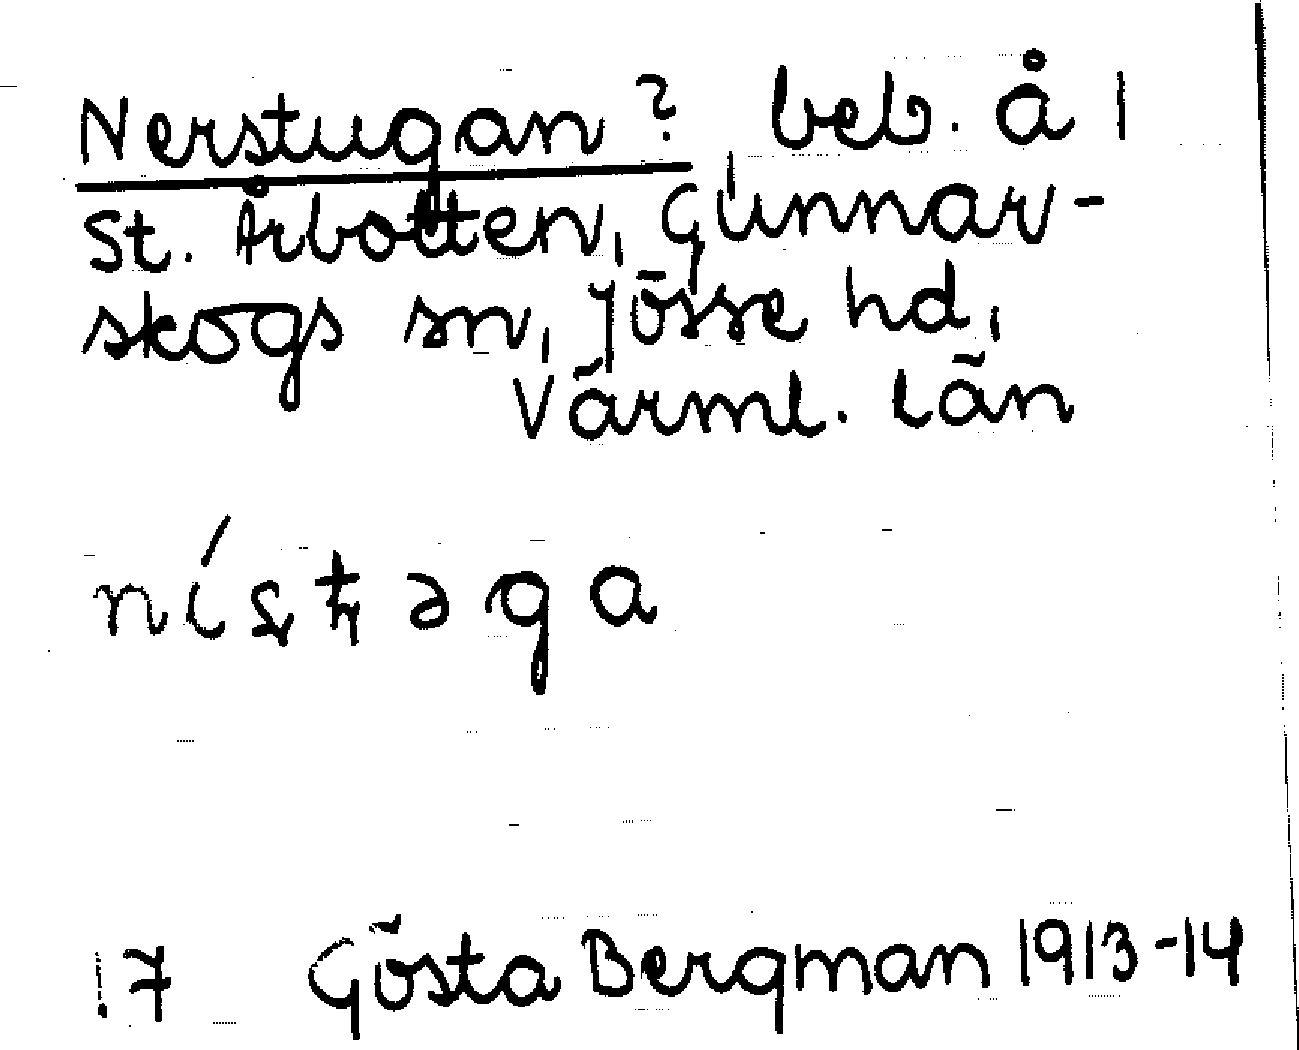 Nerstugan? beb. å 1
St. Årbotten, Gunnar-
skogs sn, Jösse hd,
Värml. län
nístəga
17 Gösta Bergman 1913-14